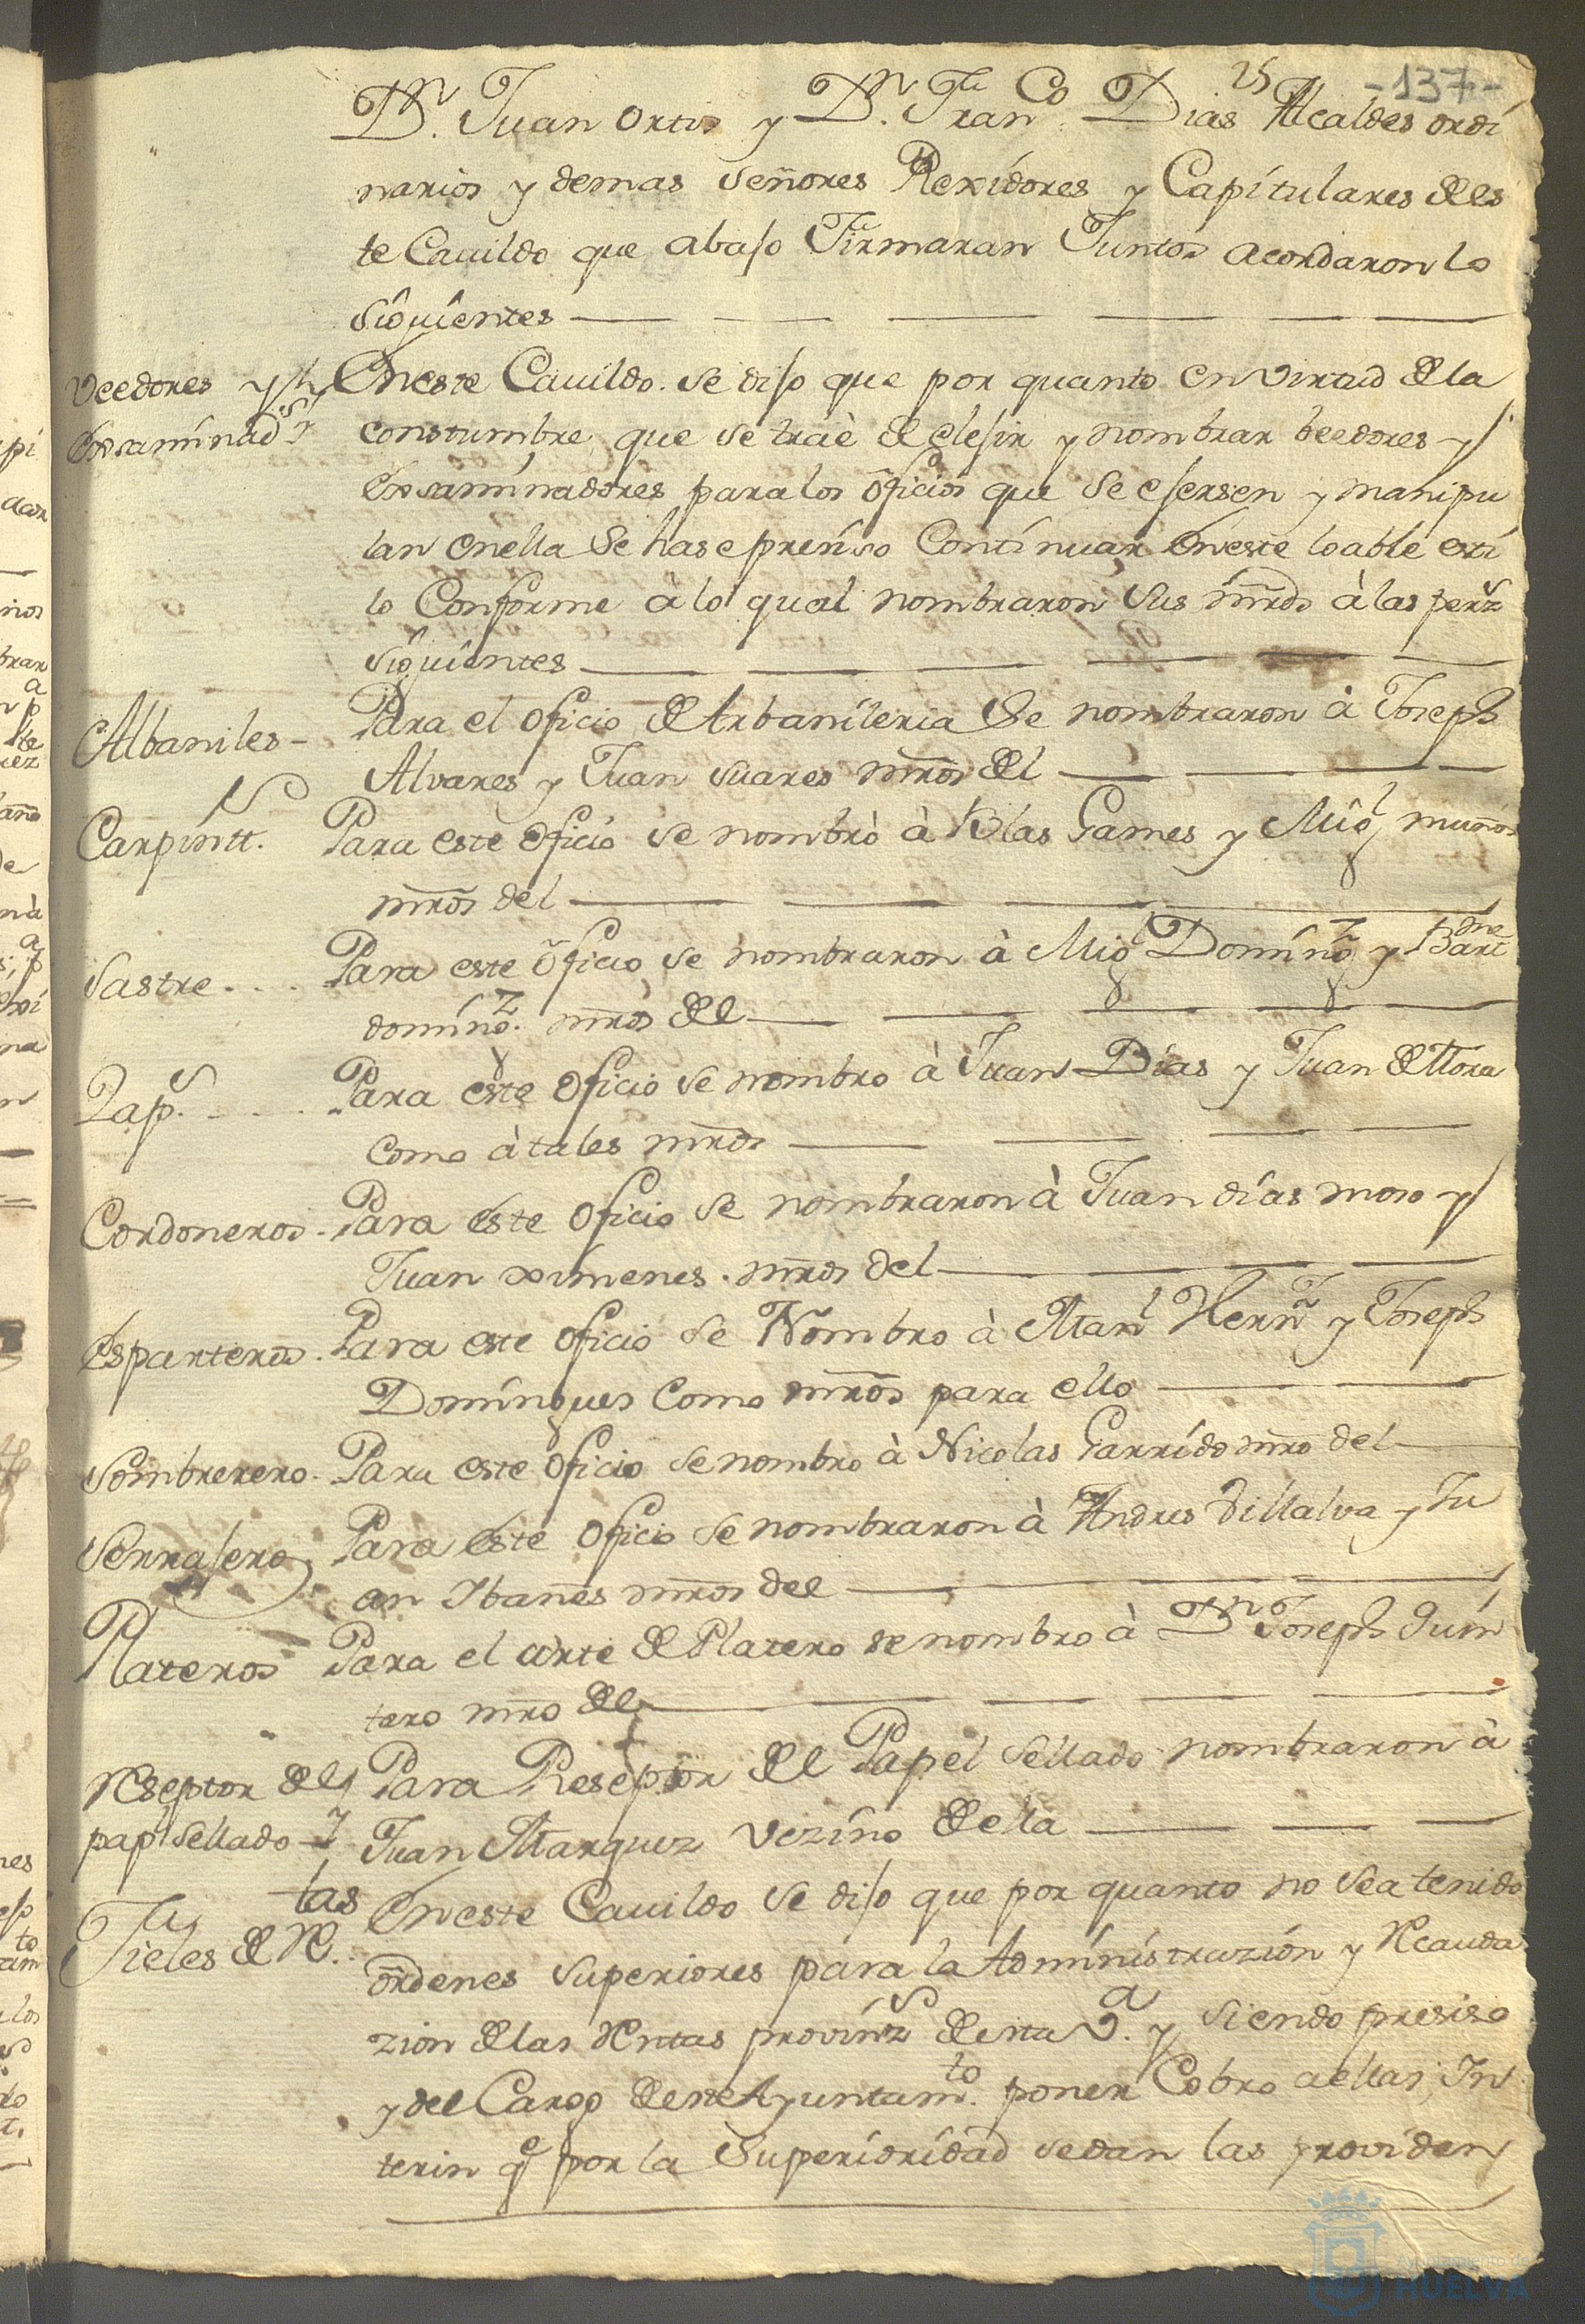 -137-
25
Dn. Juan Ortis y Dn. Franco. Dias Alcaldes ordi
narios y demas señores Rexidores y Capitulares dees
te Cauildo que abajo Firmaran Juntos acordaron lo
siguientes
Veedores y
Exsaminads.
Eneste Cauildo. se dijo que por quanto en virtud dela
constumbre que se traè de elejir y nombrar beedores y
Exsaminadores para los oficios que se ejersen y manipu
lan enella Se hase preciso Continuar Eneste loable esti
lo Conforme à lo qual nombraron sus mrds à las pers
siguientes
Albaniles -
Para el oficio de Arbanileria Se nombraron à Joseph
Alvares y Juan suares mros del
Carpintts.
Para este oficio se nombrò à Blas Games y Migl muños
mros del
Sastre . . .
Para este oficio se nombraron à Migl Domingz y Bartme
domingz. mros del
Zaps. . . .
Para este oficio se nombro à Juan Dias y Juan de Mora
como à tales mros
Cordoneros .
Para este oficio se nombraron à Juan dias moso y
Juan ximenes . mros del
Esparteros .
Para este oficio se Nombro à Manl Hernz y Joseph
Domingues Como mros para ello
Sombrerero .
Para este oficio se nombro à Nicolas Garrido mro del
Serrajero
Para este oficio se nombraron à Andres Villalva y Ju
an Ibañes mros del
Plateros
Para el arte de Platero se nombro à Dn Joseph Quin
tero mro del
Reseptor del
papl sellado
Para Reseptor del Papel sellado nombraron à
Juan Marquez vezino deella
Fieles de Rtas.
Eneste Cauildo se dijo que por quanto no sea tenido
ordenes superiores para la Administrazion y Recauda
zion delas Rentas provinzs deesta Va. y siendo presiso
y del Cargo deeste Ayuntamto. poner Cobro aellas, In
terin qe por la Superioridad sedan las providen
Ayuntamiento de
HUELVA